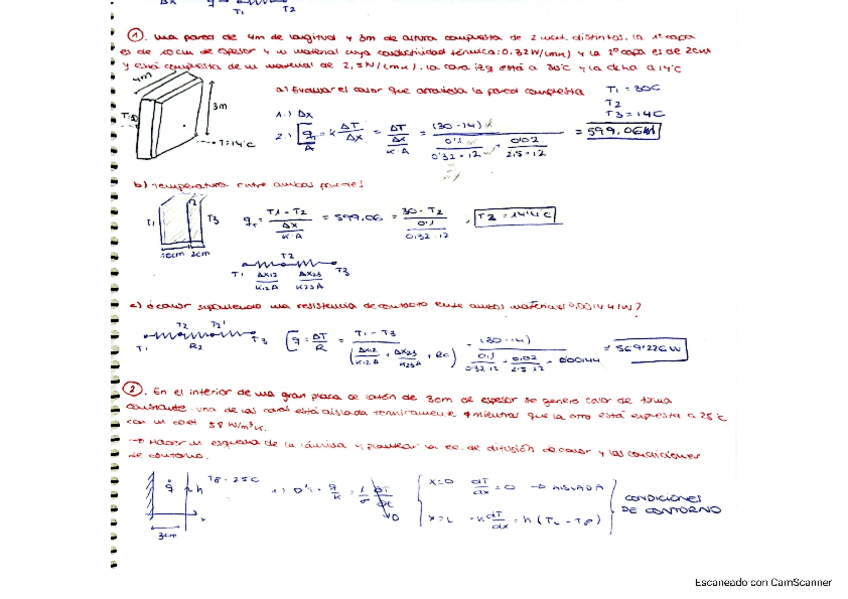 T1 T2
① una pared de 4m de longitud y 3m de altura compuesta de 2 mat. distintos. la 1ª capa
es de 10cm de espesor y un material cuya conductividad térmica: 0.32W/(mK) y la 2ª capa es de 2cm
y está compuesta de un material de 2,5W/(mK). la cara izq está a 30°C y la dcha a 14°C
4m
3m
T=14°C
a) Evaluar el calor que atraviesa la pared compuesta
T1 = 30C
T2
T3 = 14C
1.) Δx
2.) q/A = k ΔT/Δx = ΔT/(Δx/K·A) = (30-14)/(0'1/0'32·12 + 0'02/2.5·12) = 599.06W
b) Temperatura entre ambas paredes
T1 2 T3
10cm 2cm
q = (T1 - T2)/(Δx/K·A) = 599,06 = (30 - T2)/(0'1/0.32·12), T2 = 14'4C
T2
T1 Δx12/K12A Δx23/K23A T3
c) ¿calor suponiendo una resistencia de contacto entre ambos materiales 0,00144 K/W?
T1 T2 T2' T3
R2
q = ΔT/R = (T1 - T3)/(Δx12/K12A + Δx23/K23A + Rc) = (30-14)/(0.1/0.32·12 + 0.02/2.5·12 + 0'00144) = 569'226W
② En el interior de una gran placa de latón de 3cm de espesor se genera calor de forma
constante. una de las caras está aislada termicamente y mientras que la otra está expuesta a 25°C
con un coef 58 W/m²K.
→ Hacer un esquema de la lámina y plantear la ec. de difusión de calor y las condiciones
de contorno.
q h T∞ = 25C
3cm
x=0 dT/dx = 0 → AISLADA
x=L -k dT/dx = h (TL - T∞)
CONDICIONES
DE CONTORNO
Escaneado con CamScanner